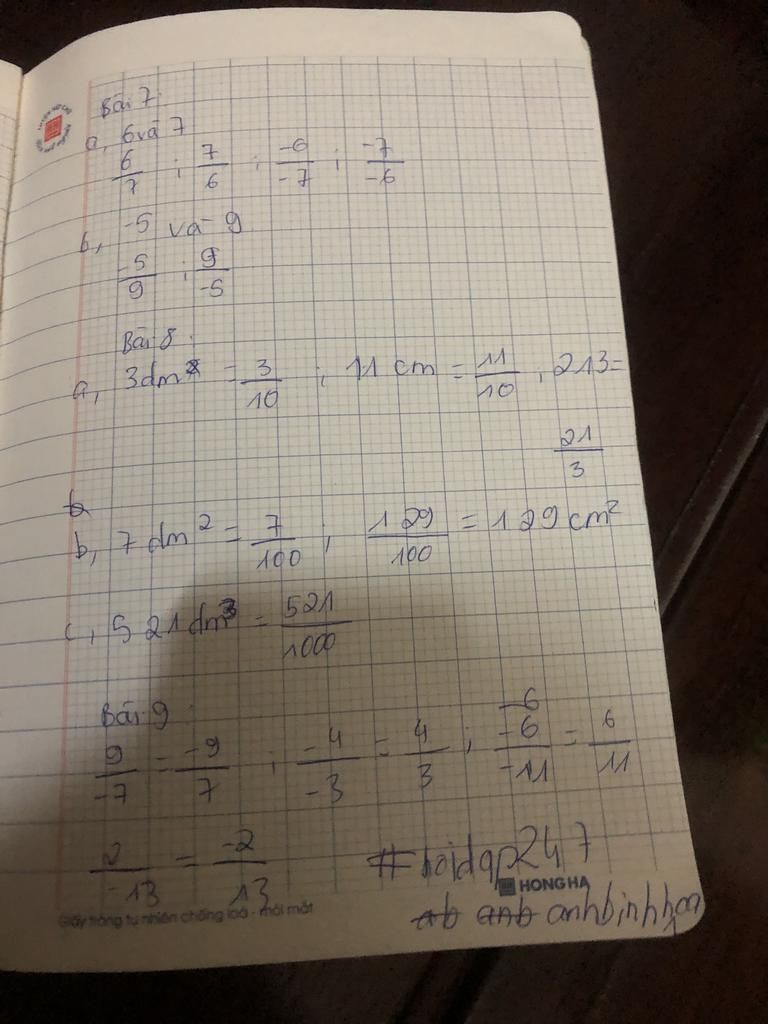 Bài 7:
a, 6 và 7
6/7 ; 7/6 ; -6/-7 ; -7/-6
b, -5 và 9
-5/9 ; 9/-5
Bài 8:
a, 3dm = 3/10 ; 11 cm = 11/10 , 213 =
21/3
b, 7 dm² = 7/100 ; 129/100 = 129 cm²
c, 521 dm³ = 521/1000
Bài 9:
9/-7 = -9/7 ; -4/-3 = 4/3 ; -6/-11 = 6/11
2/-13 = -2/13
#hoidap247
HONG HA
Giấy trắng tự nhiên chống loá - mỏi mắt
ab anb anhbinhhan